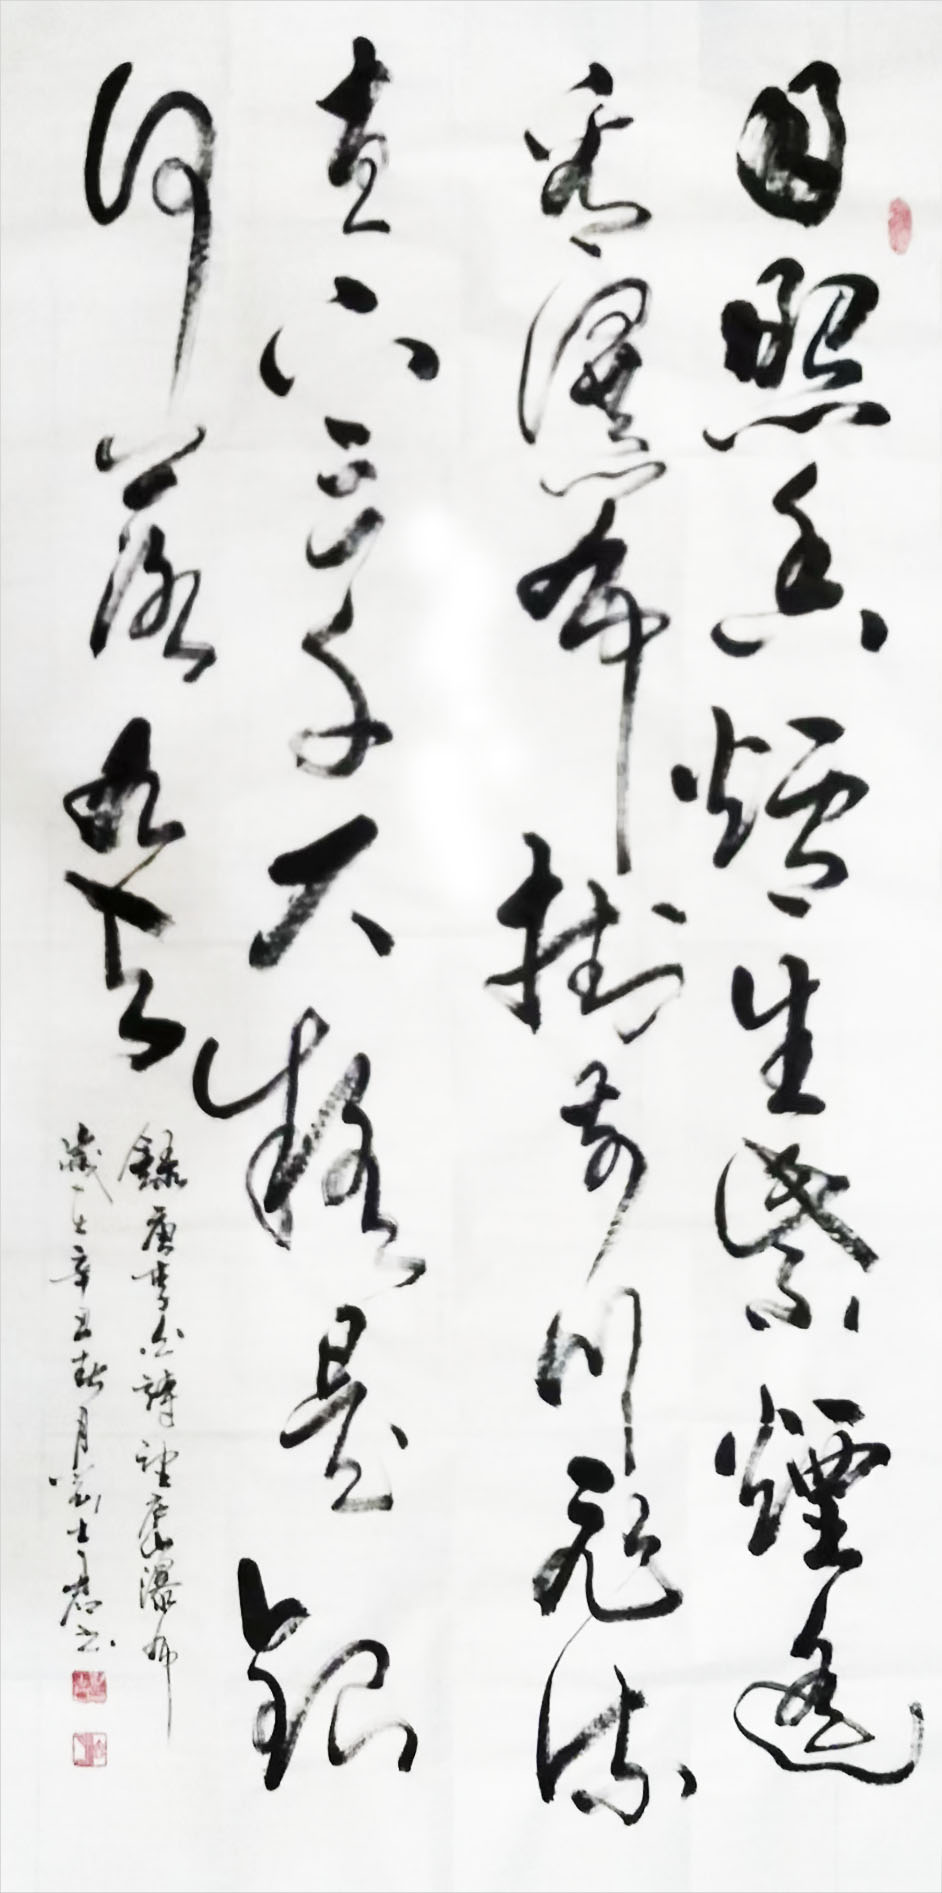 日照香爐生紫煙遙
看瀑布掛前川飛流
直下三千尺疑是銀
河落九天
錄唐李白詩望廬山瀑布
歲次辛丑春月劉士君書